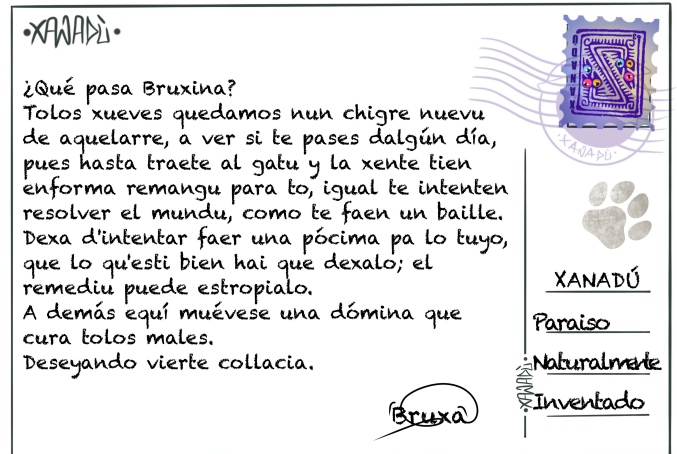 •XANADÚ•
¿Qué pasa Bruxina?
Tolos xueves quedamos nun chigre nuevu
de aquelarre, a ver si te pases dalgún día,
pues hasta traete al gatu y la xente tien
enforma remangu para to, igual te intenten
resolver el mundu, como te faen un baille.
Dexa d'intentar faer una pócima pa lo tuyo,
que lo qu'esti bien hai que dexalo; el
remediu puede estropialo.
A demás equí muévese una dómina que
cura tolos males.
Deseyando vierte collacia.
Bruxa
XANADÚ
•XANADÚ•
XANADÚ
Paraiso
Naturalmente
Inventado
•XANADÚ•